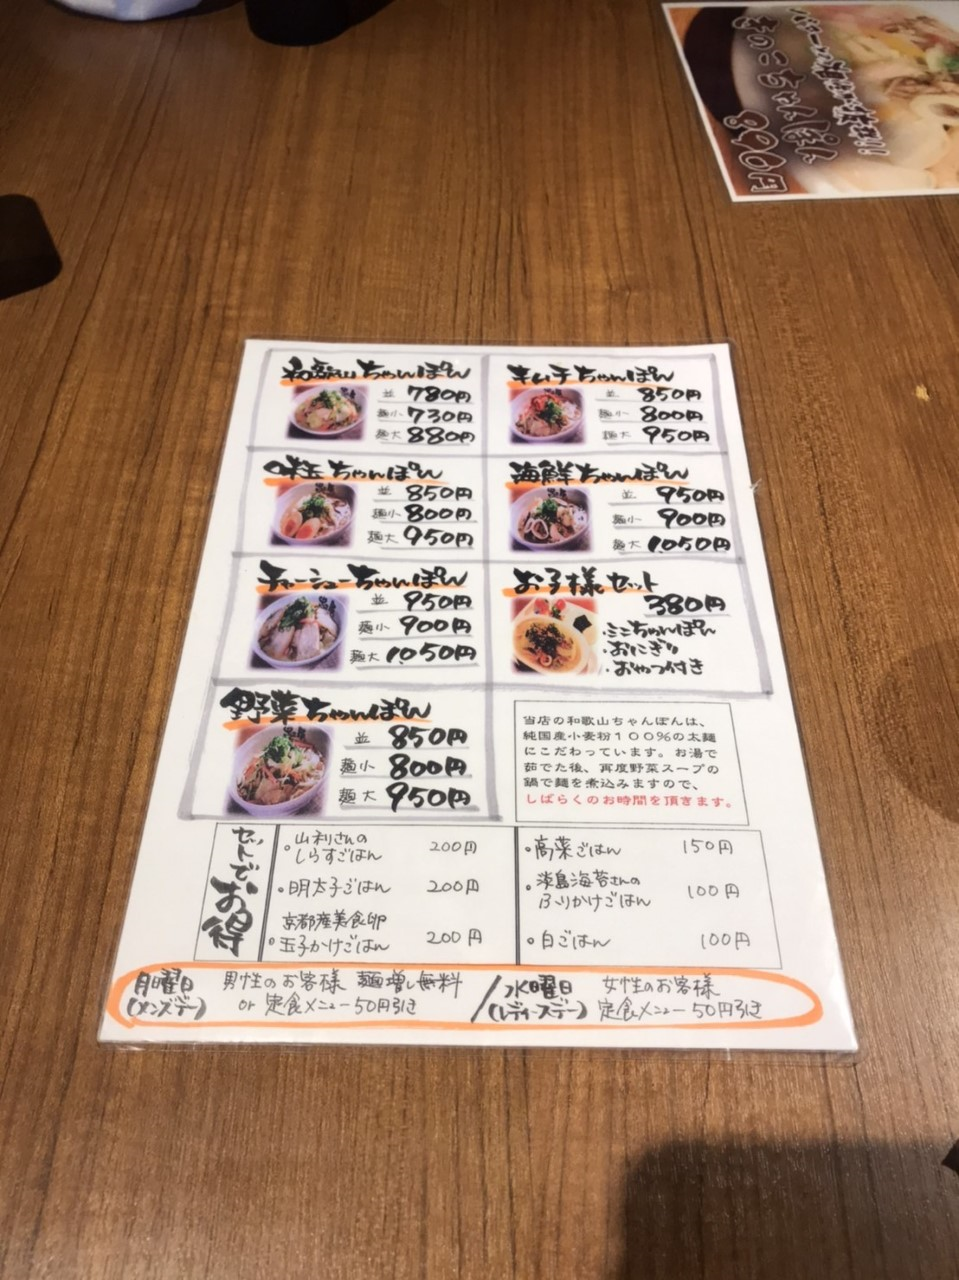 和歌山ちゃんぽん
並 780円
麺小 730円
麺大 880円
キムチちゃんぽん
並 850円
麺小 800円
麺大 950円
味玉ちゃんぽん
並 850円
麺小 800円
麺大 950円
海鮮ちゃんぽん
並 950円
麺小 900円
麺大 1,050円
チャーシューちゃんぽん
並 950円
麺小 900円
麺大 1,050円
お子様セット
380円
・ミニちゃんぽん
・おにぎり
・おやつ付き
野菜ちゃんぽん
並 850円
麺小 800円
麺大 950円
当店の和歌山ちゃんぽんは、
純国産小麦粉100%の太麺
にこだわっています。お湯で
茹でた後、再度野菜スープの
鍋で麺を煮込みますので、
しばらくのお時間を頂きます。
セットでお得
・山利さんの
しらすごはん 200円
・明太子ごはん 200円
京都産美食卵
・玉子かけごはん 200円
・高菜ごはん 150円
・淡島海苔さんの
ふりかけごはん 100円
・白ごはん 100円
月曜日 男性のお客様 麺増し無料
(メンズデー) or 定食メニュー50円引き
/水曜日 女性のお客様
(レディースデー) 定食メニュー50円引き